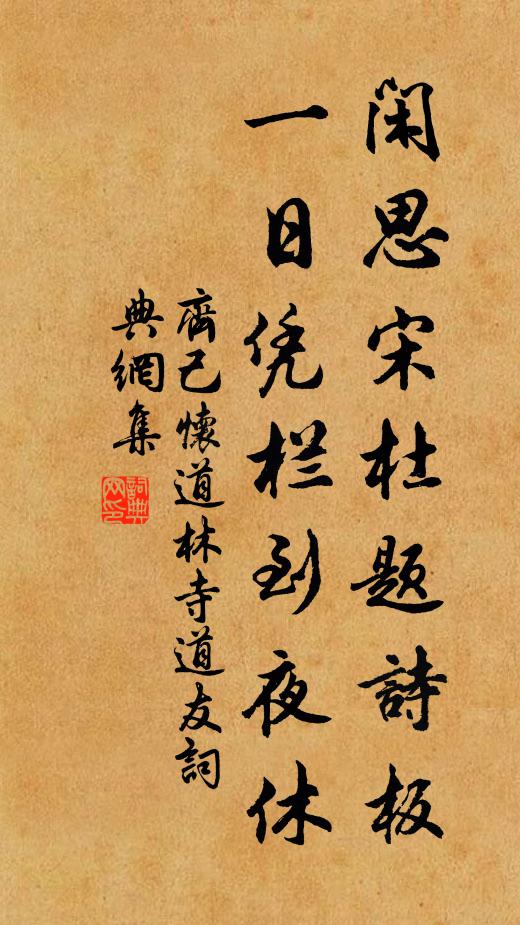 闲思宋杜题詩板
一日凭栏到夜休
齊己懷道林寺道友詞
典網集
詞典
网印